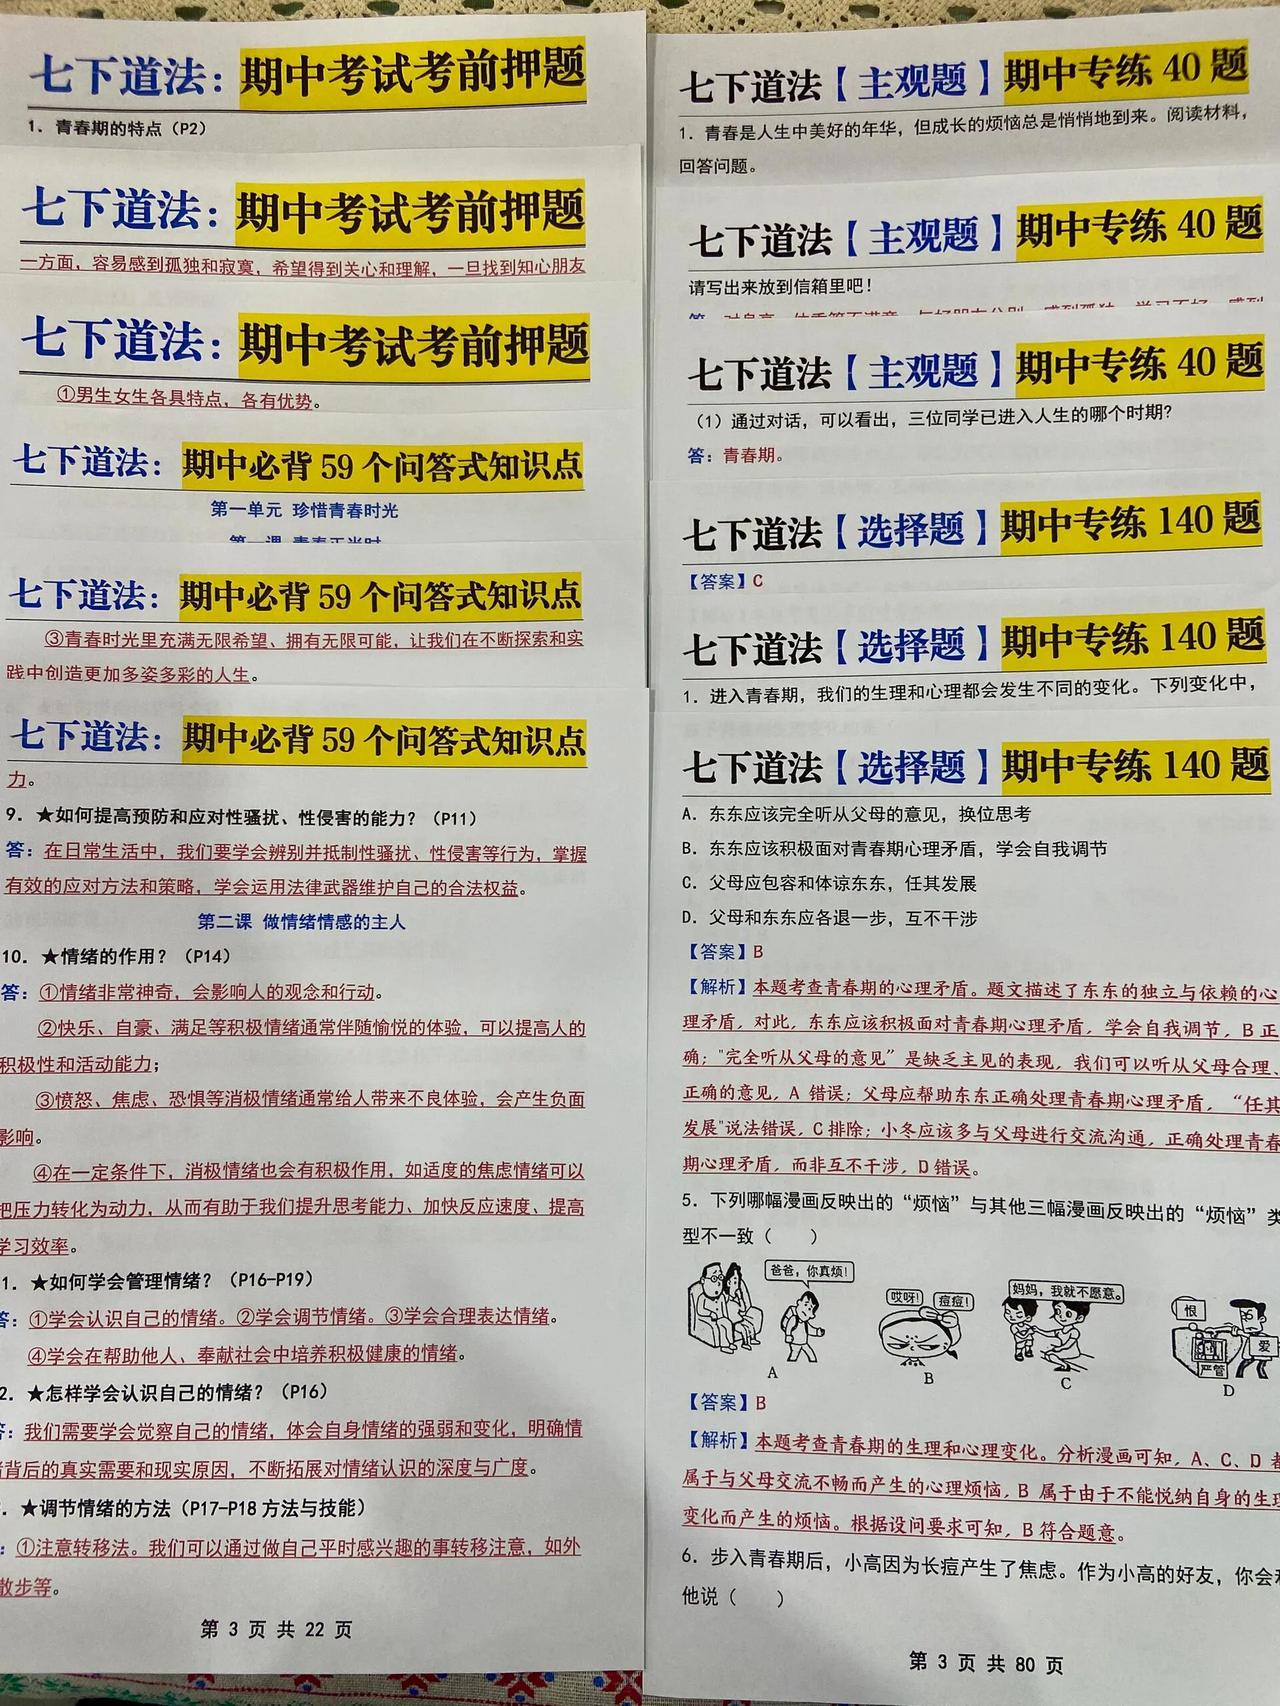 七下道法：期中考试考前押题
1．青春期的特点（P2）
七下道法：期中考试考前押题
一方面，容易感到孤独和寂寞，希望得到关心和理解，一旦找到知心朋友
七下道法：期中考试考前押题
①男生女生各具特点，各有优势。
七下道法：期中必背 59 个问答式知识点
第一单元 珍惜青春时光
第一课 青春正当时
七下道法：期中必背 59 个问答式知识点
③青春时光里充满无限希望、拥有无限可能，让我们在不断探索和实
践中创造更加多姿多彩的人生。
七下道法：期中必背 59 个问答式知识点
力。
9．★如何提高预防和应对性骚扰、性侵害的能力？（P11）
答：在日常生活中，我们要学会辨别并抵制性骚扰、性侵害等行为，掌握
有效的应对方法和策略，学会运用法律武器维护自己的合法权益。
第二课 做情绪情感的主人
10．★情绪的作用？（P14）
答：①情绪非常神奇，会影响人的观念和行动。
②快乐、自豪、满足等积极情绪通常伴随愉悦的体验，可以提高人的
积极性和活动能力；
③愤怒、焦虑、恐惧等消极情绪通常给人带来不良体验，会产生负面
影响。
④在一定条件下，消极情绪也会有积极作用，如适度的焦虑情绪可以
把压力转化为动力，从而有助于我们提升思考能力、加快反应速度、提高
学习效率。
1．★如何学会管理情绪？（P16-P19）
答：①学会认识自己的情绪。②学会调节情绪。③学会合理表达情绪。
④学会在帮助他人、奉献社会中培养积极健康的情绪。
2．★怎样学会认识自己的情绪？（P16）
答：我们需要学会觉察自己的情绪，体会自身情绪的强弱和变化，明确情
绪背后的真实需要和现实原因，不断拓展对情绪认识的深度与广度。
．★调节情绪的方法（P17-P18 方法与技能）
：①注意转移法。我们可以通过做自己平时感兴趣的事转移注意，如外
散步等。
第 3 页 共 22 页
七下道法【主观题】期中专练 40 题
1．青春是人生中美好的年华，但成长的烦恼总是悄悄地到来。阅读材料，
回答问题。
七下道法【主观题】期中专练 40 题
请写出来放到信箱里吧！
七下道法【主观题】期中专练 40 题
（1）通过对话，可以看出，三位同学已进入人生的哪个时期?
答：青春期。
七下道法【选择题】期中专练 140 题
【答案】C
七下道法【选择题】期中专练 140 题
1．进入青春期，我们的生理和心理都会发生不同的变化。下列变化中，
七下道法【选择题】期中专练 140 题
A．东东应该完全听从父母的意见，换位思考
B．东东应该积极面对青春期心理矛盾，学会自我调节
C．父母应包容和体谅东东，任其发展
D．父母和东东应各退一步，互不干涉
【答案】B
【解析】本题考查青春期的心理矛盾。题文描述了东东的独立与依赖的心
理矛盾，对此，东东应该积极面对青春期心理矛盾，学会自我调节，B 正
确；"完全听从父母的意见”是缺乏主见的表现，我们可以听从父母合理、
正确的意见，A 错误；父母应帮助东东正确处理青春期心理矛盾，“任其
发展"说法错误，C 排除；小冬应该多与父母进行交流沟通，正确处理青春
期心理矛盾，而非互不干涉，D 错误。
5．下列哪幅漫画反映出的“烦恼”与其他三幅漫画反映出的“烦恼”类
型不一致（ ）
爸爸，你真烦！
哎呀！ 痘痘！
妈妈，我就不愿意。
恨
严管
爱
A B C D
【答案】B
【解析】本题考查青春期的生理和心理变化。分析漫画可知，A、C、D 都
属于与父母交流不畅而产生的心理烦恼，B 属于由于不能悦纳自身的生理
变化而产生的烦恼。根据设问要求可知，B 符合题意。
6．步入青春期后，小高因为长痘产生了焦虑。作为小高的好友，你会和
他说（ ）
第 3 页 共 80 页